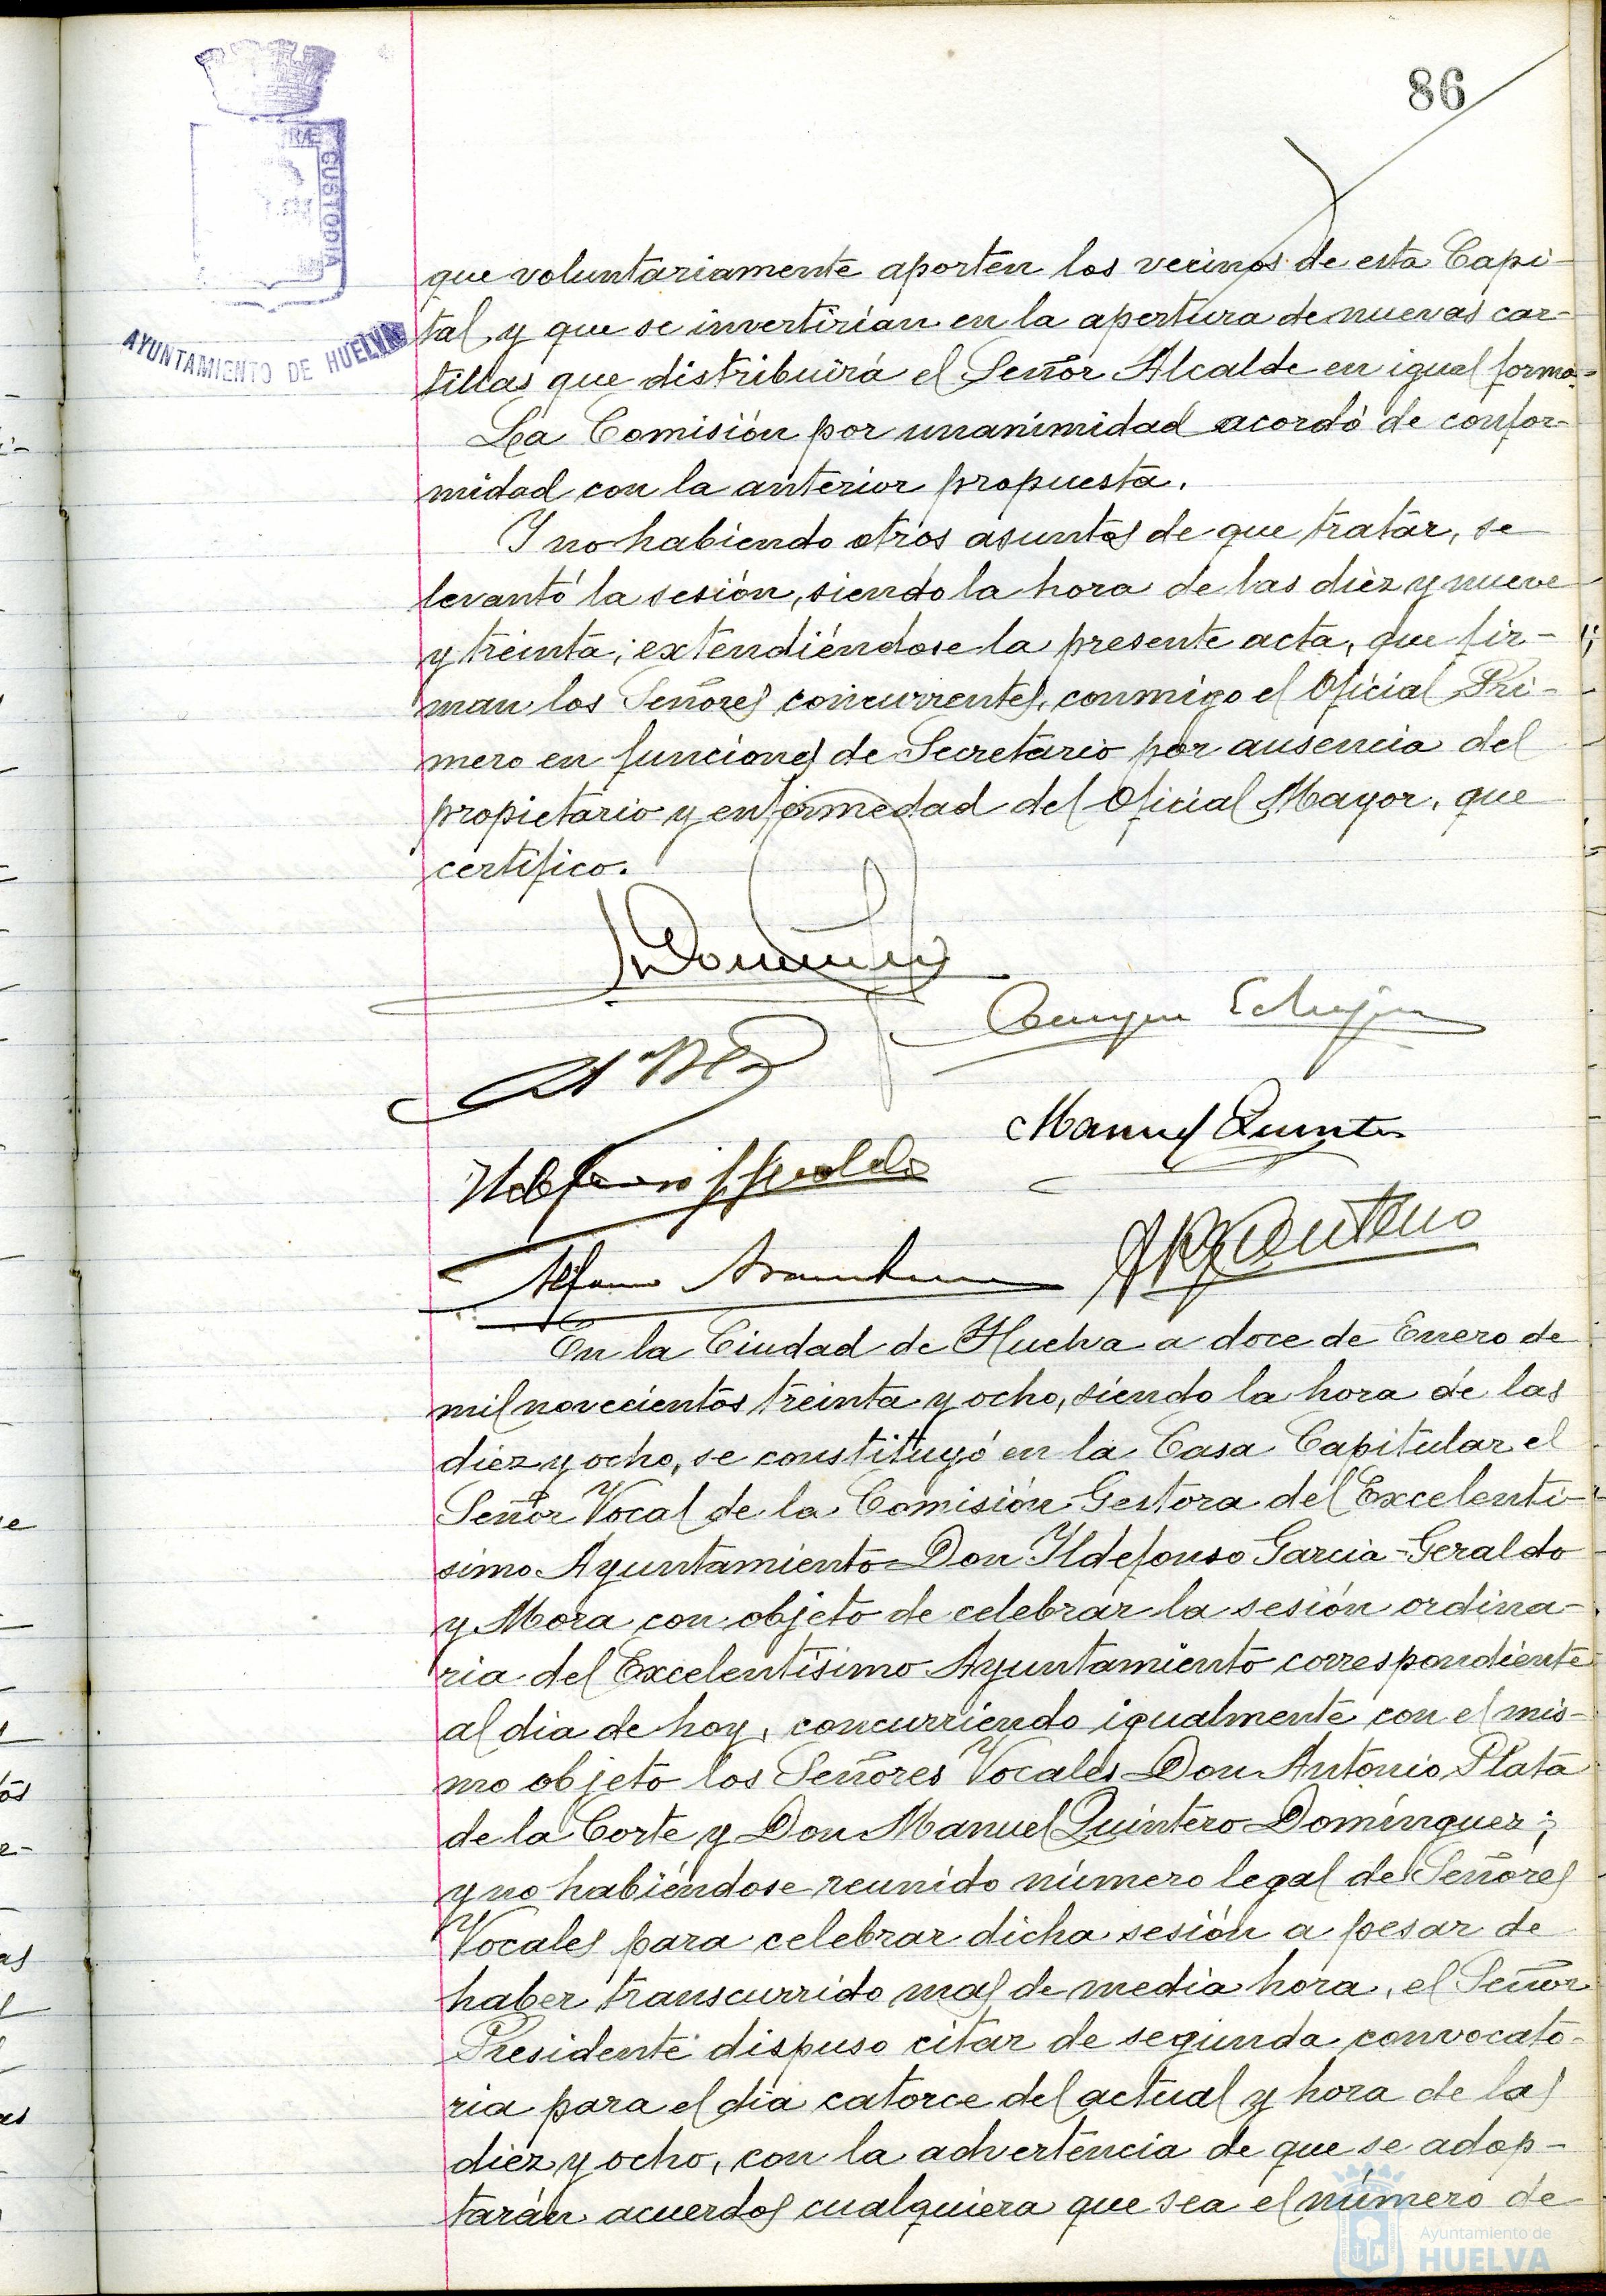 86
RÆ CUSTODIA
AYUNTAMIENTO DE HUELVA
que voluntariamente aporten los vecinos de esta Capi-
tal y que se invertirían en la apertura de nuevas car-
tillas que distribuirá el Señor Alcalde en igual forma.=
La Comisión por unanimidad acordó de confor-
midad con la anterior propuesta.
Y no habiendo otros asuntos de que tratar, se
levantó la sesión, siendo la hora de las diez y nueve
y treinta; extendiéndose la presente acta, que fir-
man los Señores concurrentes, conmigo el Oficial Pri-
mero en funciones de Secretario por ausencia del
propietario y enfermedad del Oficial Mayor, que
certifico.
Manuel Quintero
En la Ciudad de Huelva a doce de Enero de
mil novecientos treinta y ocho, siendo la hora de las
diez y ocho, se constituyó en la Casa Capitular el
Señor Vocal de la Comisión Gestora del Excelentí-
simo Ayuntamiento Don Ildefonso García-Geraldo
y Mora con objeto de celebrar la sesión ordina-
ria del Excelentísimo Ayuntamiento correspondiente
al dia de hoy, concurriendo igualmente con el mis-
mo objeto los Señores Vocales Don Antonio Plata
de la Corte y Don Manuel Quintero Domínguez;
y no habiéndose reunido número legal de Señores
Vocales para celebrar dicha sesión a pesar de
haber transcurrido mas de media hora, el Señor
Presidente dispuso citar de segunda convocato-
ria para el día catorce del actual y hora de las
diez y ocho, con la advertencia de que se adop-
tarán acuerdos cualquiera que sea el número de
Ayuntamiento de
HUELVA